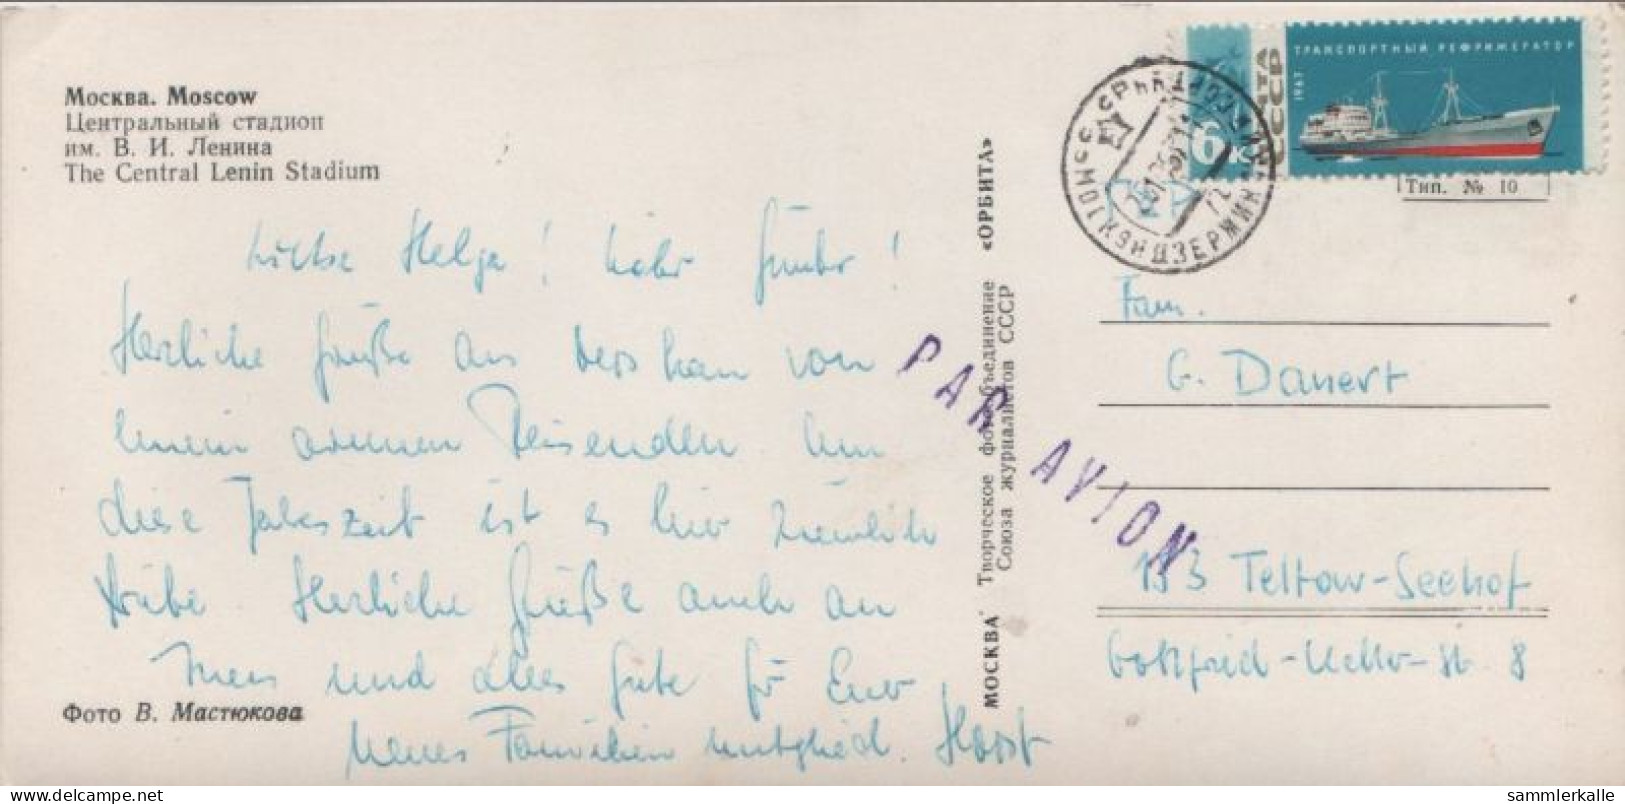 Москва. Moscow
Центральный стадион
им. В. И. Ленина
The Central Lenin Stadium
Liebe Helga! Lieber Günter!
Herzliche Grüße aus von
einem armen Reisenden. Um
diese Jahreszeit ist es hier ziemlich
trübe. Herzliche Grüße auch an
und alles Gute für Euer
neues Familienmitglied. Horst
Фото В. Мастюкова
МОСКВА Творческое фотообъединение «ОРБИТА»
Союза журналистов СССР
PAR AVION
ТРАНСПОРТНЫЙ РЕФРИЖЕРАТОР
1967
ПОЧТА
СССР
6к
Тип. № 10
Fam.
G. Danert
153 Teltow-Seehof
Gottfried-Keller-Str. 8
sammlerkalle
© www.delcampe.net